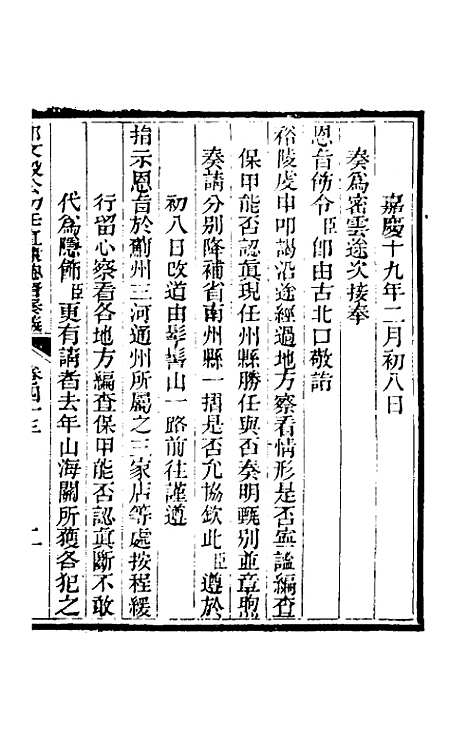 嘉慶十九年二月初八日
奏為密雲途次接奉
恩旨飭令臣卽由古北口敬詣
裕陵虔申叩謁沿途經過地方察看情形是否寧謐編查
保甲能否認真現任州縣勝任與否奏明甄別並章煦
奏請分別降補省南州縣一摺是否允協欽此臣遵於
初八日改道由髽髻山一路前往謹遵
指示恩旨於薊州三河通州所屬之三家店等處按程緩
行留心察看各地方編查保甲能否認真斷不敢
代為隱飾臣更有請者去年山海關所獲各犯之
那文毅公初任直隸總督奏議
卷四十三